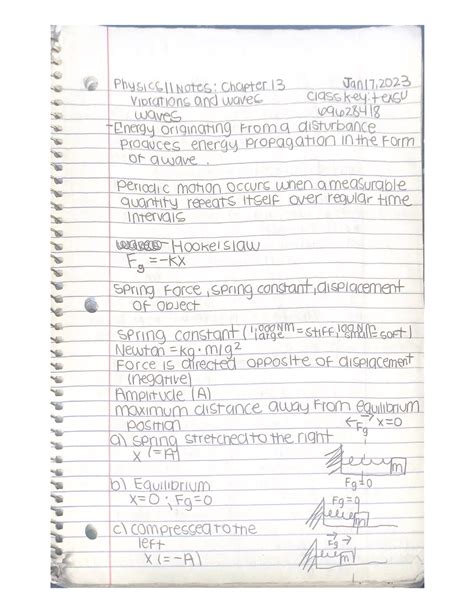 Physics 11 Notes: Chapter 13 Jan 17, 2023
Vibrations and waves class key: tensu
waves 69628418
-Energy originating from a disturbance
produces energy propagation in the form
of a wave.
Periodic motion occurs when a measurable
quantity repeats itself over regular time
intervals
Hooke's law
Fg = -kx
spring force, spring constant, displacement
of object
spring constant (1,000 N/M large = stiff, 100 N/M small = soft)
Newton = kg · m/g²
Force is directed opposite of displacement
(negative)
Amplitude (A)
maximum distance away from equilibrium
position Fg x=0
a) spring stretched to the right
x (=A) m
Fg=0
b) Equilibrium
x=0; Fg=0 Fg=0
m
c) compressed to the
left
x (=-A) m